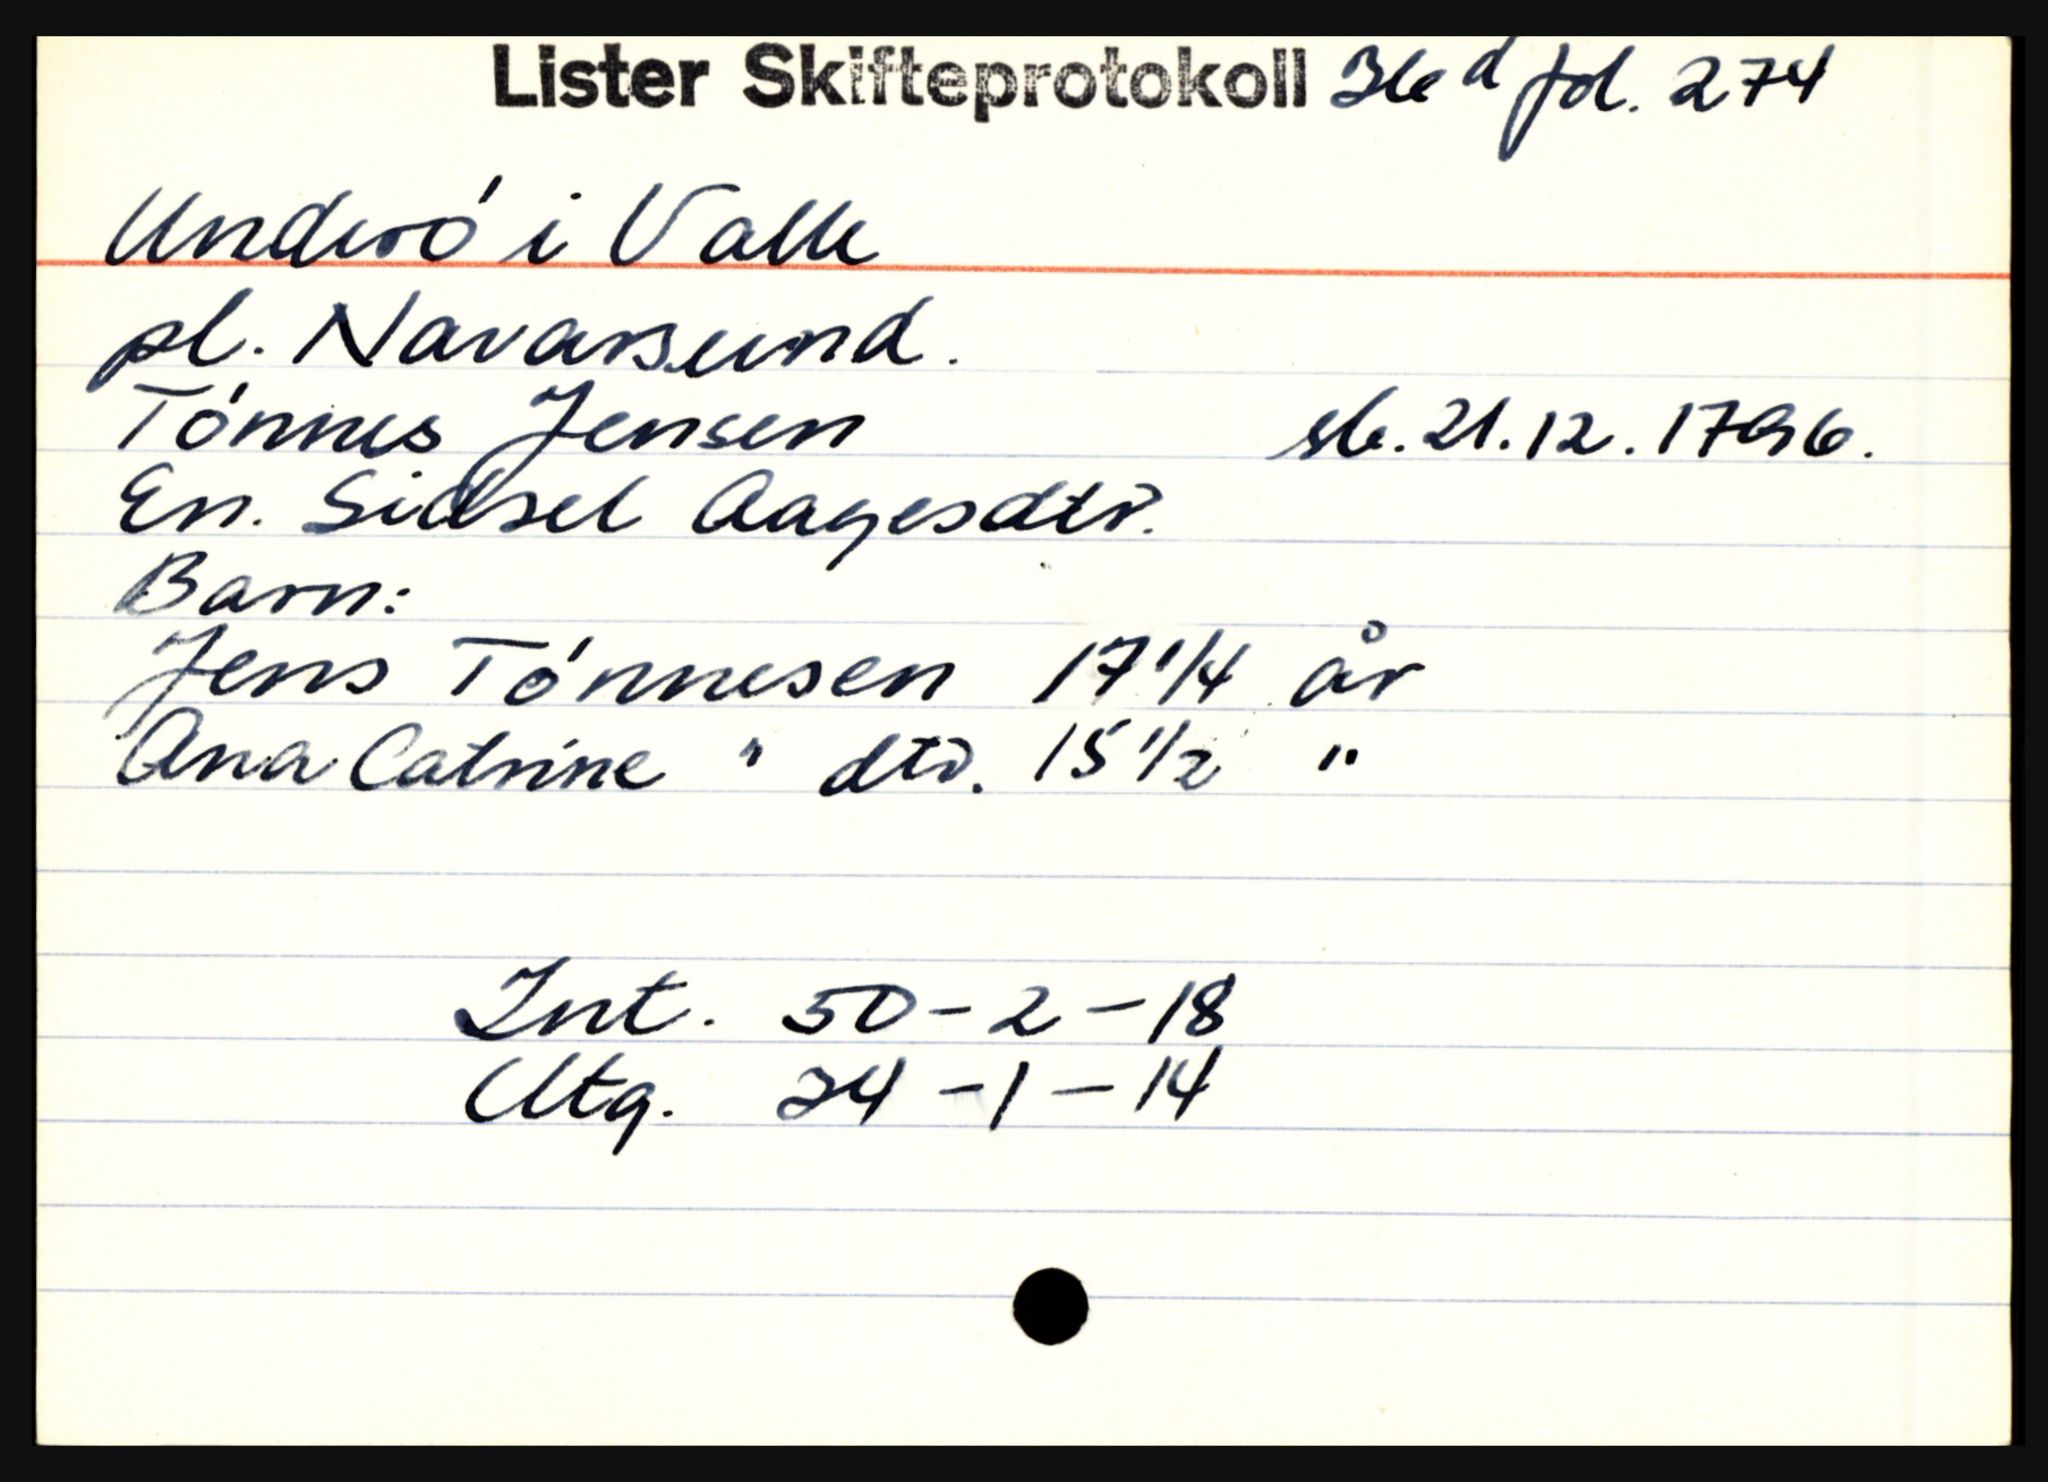 Lister Skifteprotokoll 3b d fol. 274
Underó i Valle
pl. Navarsund.
Tónnes Jensen sb. 21.12.1796.
En. Sidsel Aagesdtr.
Barn:
Jens Tónnesen 17 1/4 år
Ana Catrine " dtr. 15 1/2 "
Int. 50-2-18
Utg. 24-1-14